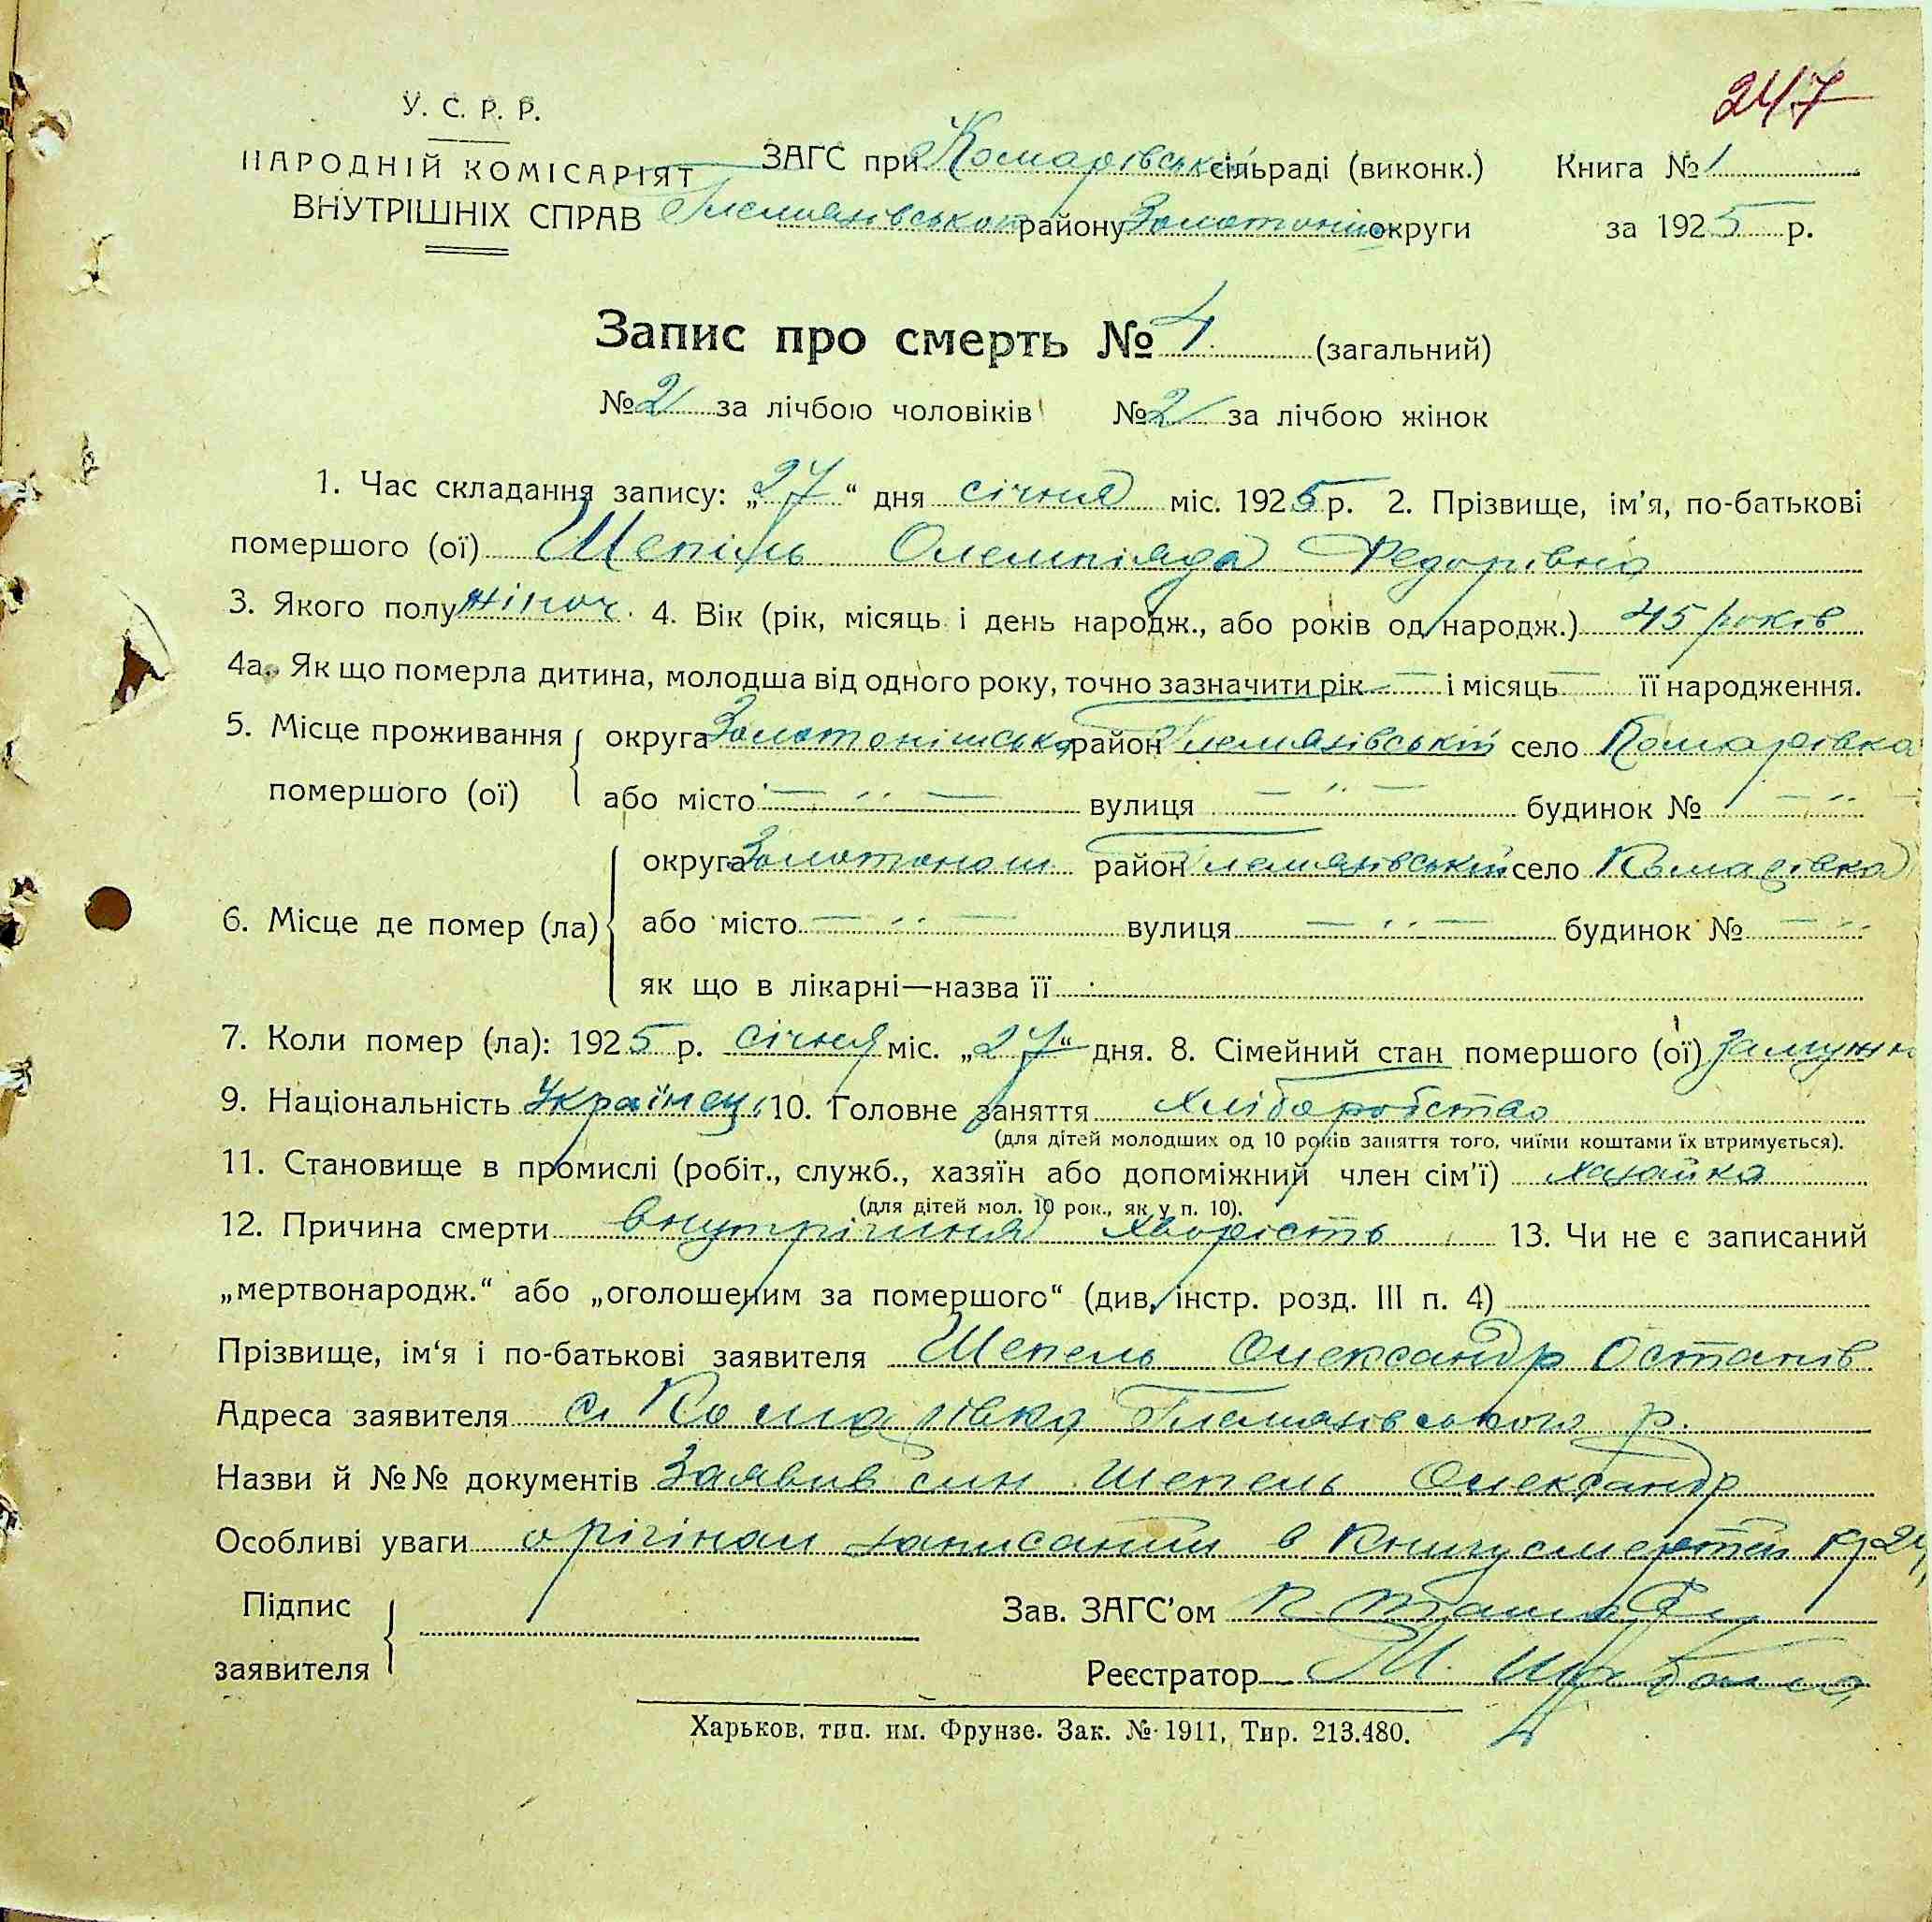 247
У. С. Р. Р.
НАРОДНІЙ КОМІСАРІЯТ
ВНУТРІШНІХ СПРАВ
ЗАГС при Комарівській сільраді (виконк.) Книга № 1
Гельмязівського району Золотоніш округи за 1925 р.
Запис про смерть № 4 (загальний)
№ 2 за лічбою чоловіків № 2 за лічбою жінок
1. Час складання запису: „27“ дня січня міс. 1925 р. 2. Прізвище, ім'я, по-батькові
помершого (ої) Шепіль Олемпіяда Федорівна
3. Якого полу жіноч. 4. Вік (рік, місяць і день народж., або років од народж.) 45 років
4а. Як що померла дитина, молодша від одного року, точно зазначити рік — і місяць — її народження.
5. Місце проживання помершого (ої) округа Золотонішська район Гельмязівський село Комарівка
або місто — „ — вулиця — „ — будинок № — „
6. Місце де помер (ла) округа Золотонош район Гельмязівський село Комарівка
або місто — „ — вулиця — „ — будинок № — „
як що в лікарні—назва її
7. Коли помер (ла): 1925 р. січня міс. „27“ дня. 8. Сімейний стан помершого (ої) замужн
9. Національність Українец. 10. Головне заняття хліборобство
(для дітей молодших од 10 років заняття того, чиїми коштами їх втримується).
11. Становище в промислі (робіт., служб., хазяїн або допоміжний член сім'ї) хазяйка
(для дітей мол. 10 рок., як у п. 10).
12. Причина смерти внутрішня хворість 13. Чи не є записаний
„мертвонародж.“ або „оголошеним за помершого“ (див, інстр. розд. III п. 4)
Прізвище, ім'я і по-батькові заявителя Шепель Олександр Остапів
Адреса заявителя с. Комарівка Гельмязівського р.
Назви й №№ документів Заявив син Шепель Олександр
Особливі уваги орігінал записаний в книгу смертей
Підпис
заявителя
Зав. ЗАГС'ом
Реєстратор
Харьков, тип. им. Фрунзе. Зак. № 1911, Тир. 213.480.